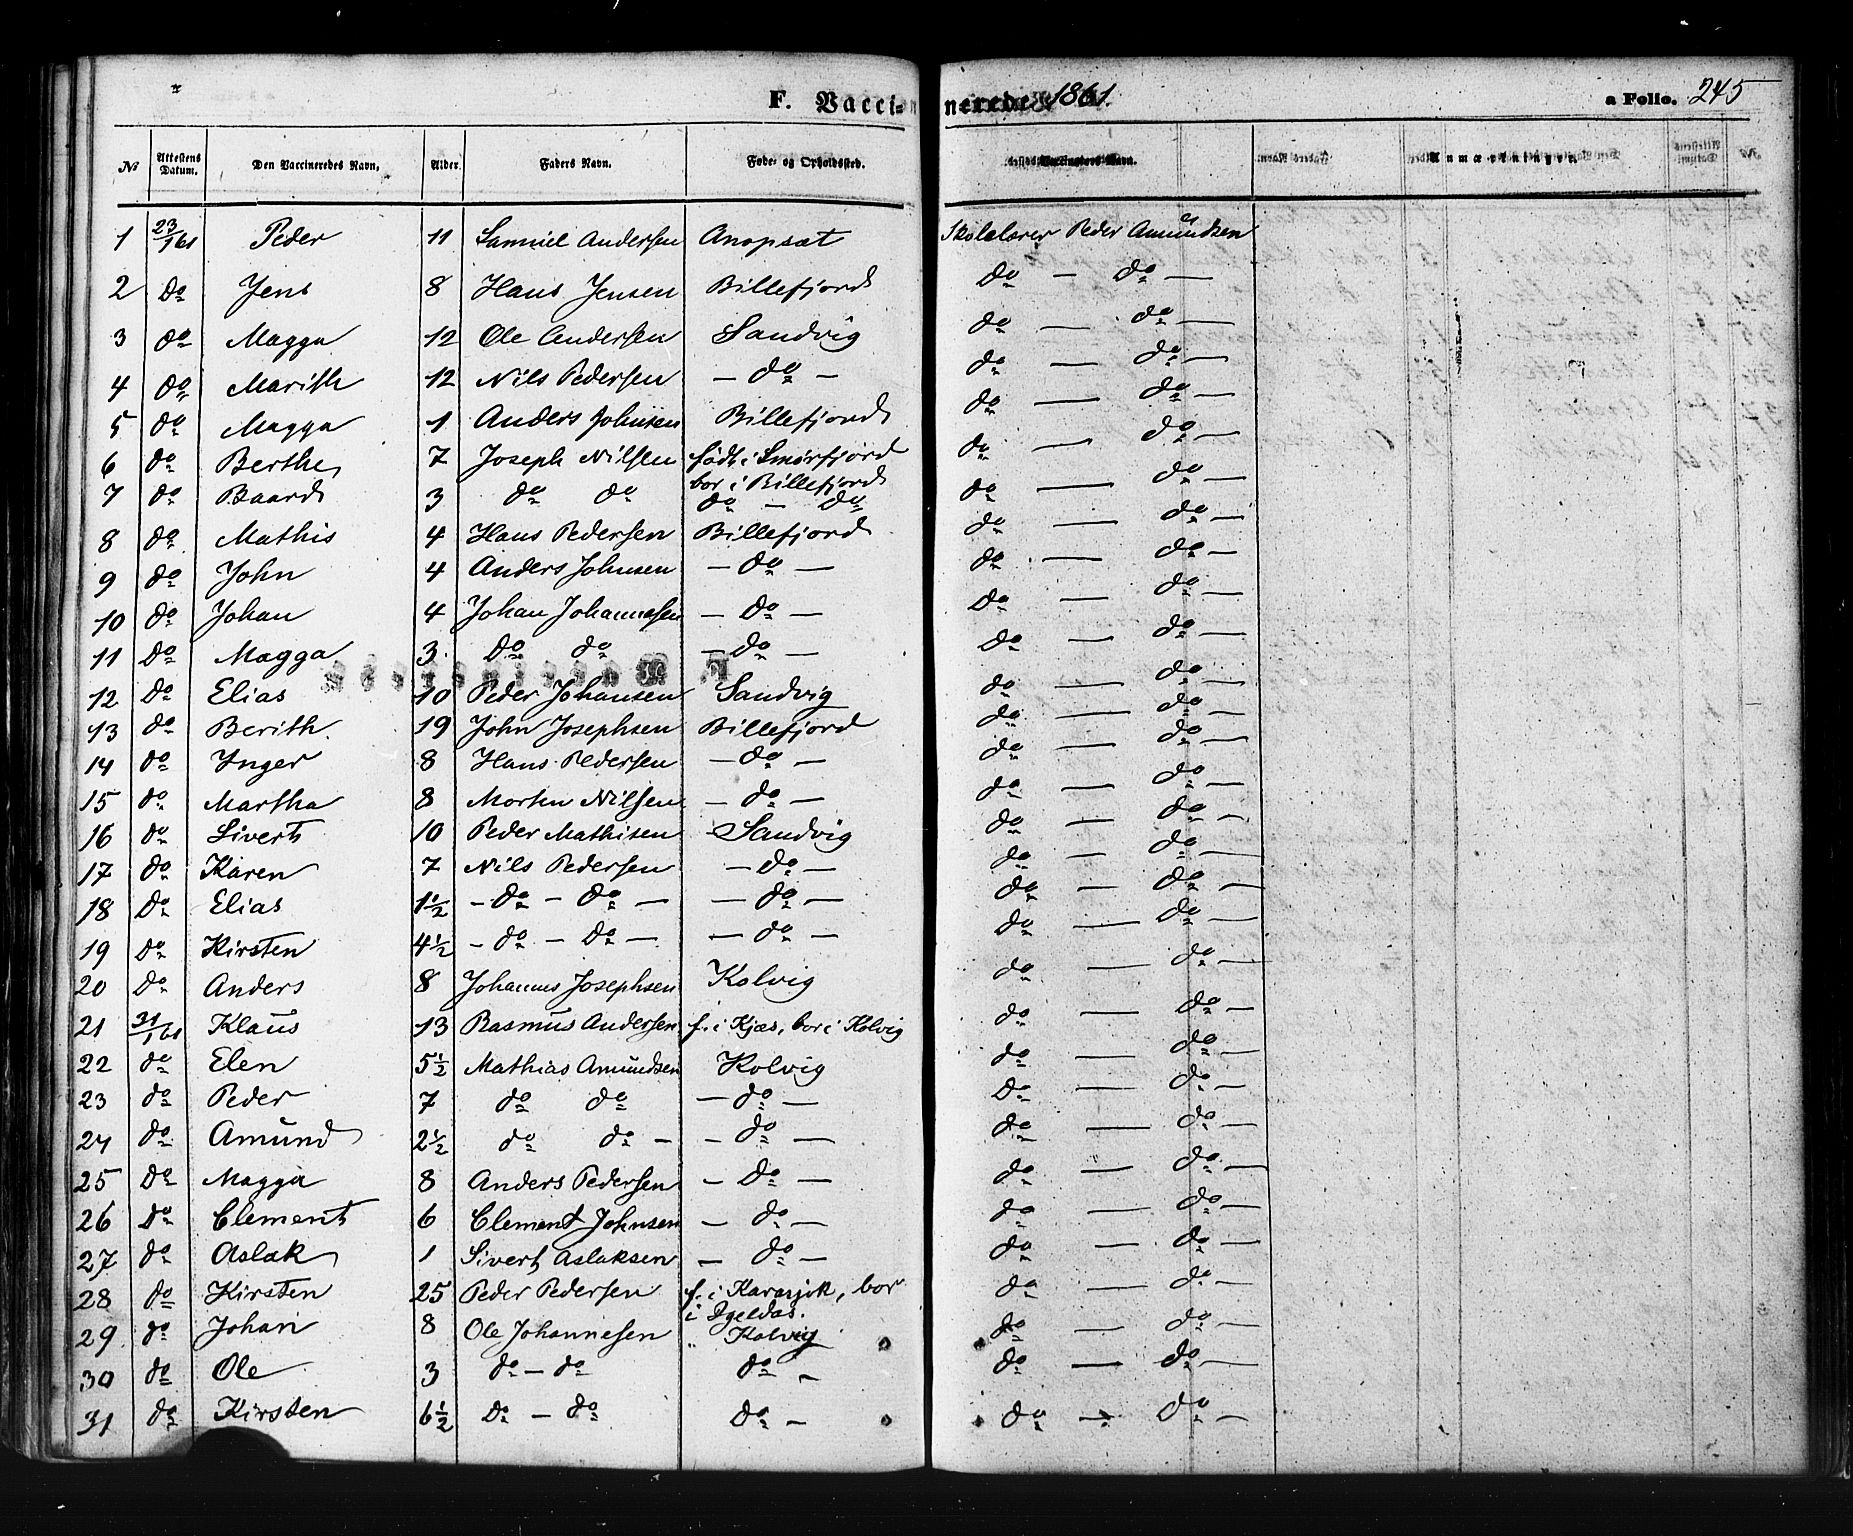 F. Vaccinerede 1861. a Folio. 245
No Attestens Datum. Den Vaccineredes Navn. Alder. Faders Navn. Føde- og Opholdssted. Vaccinateurs Navn. Anmærkninger.
1 23/1 61 Peder 11 Samuel Andersen Anopsæt Skolelærer Peder Amundsen
2 do Jens 8 Hans Jensen Billefjord do — do —
3 do Magga 12 Ole Andersen Sandvig do — do —
4 do Marith 12 Nils Pedersen — do — do — do —
5 do Magga 1 Anders Johnsen Billefjord do — do —
6 do Berthe 7 Joseph Nilsen født i Smørfjord do — do —
bor i Billefjord
7 do Baard 3 do do do — do do — do —
8 do Mathis 4 Hans Pedersen Billefjord do — do —
9 do John 4 Anders Johnsen — do — do — do —
10 do Johan 4 Johan Johannesen — do — do — do —
11 do Magga 3 do do — do — do — do —
12 do Elias 10 Peder Johansen Sandvig do — do —
13 do Berith 19 John Josephsen Billefjord do — do —
14 do Inger 8 Hans Pedersen — do — do — do —
15 do Martha 8 Morten Nilsen — do — do — do —
16 do Sivert 10 Peder Mathisen Sandvig do — do —
17 do Karen 7 Nils Pedersen — do — do — do —
18 do Elias 1½ — do — do — — do — do — do —
19 do Kirsten 4½ — do — do — — do — do — do —
20 do Anders 8 Johannes Josephsen Kolvig do — do —
21 31/1 61 Klaus 13 Rasmus Andersen f. i Kjæs, bor i Kolvig do — do —
22 do Elen 5½ Mathias Amundsen Kolvig do — do —
23 do Peder 7 do do — do — do — do —
24 do Amund 2½ do do — — do — do — do —
25 do Magga 8 Anders Pedersen — do — do — do —
26 do Clement 6 Clement Johnsen — do — do — do —
27 do Aslak 1 Sivert Aslaksen — do — do — do —
28 do Kirsten 25 Peder Pedersen f. i Karasjok, bor do — do —
i Igeldas.
29 do Johan 8 Ole Johannesen " Kolvig do — do —
30 do Ole 3 do — do do — do — do —
31 do Kirsten 6½ do — do do — do — do —